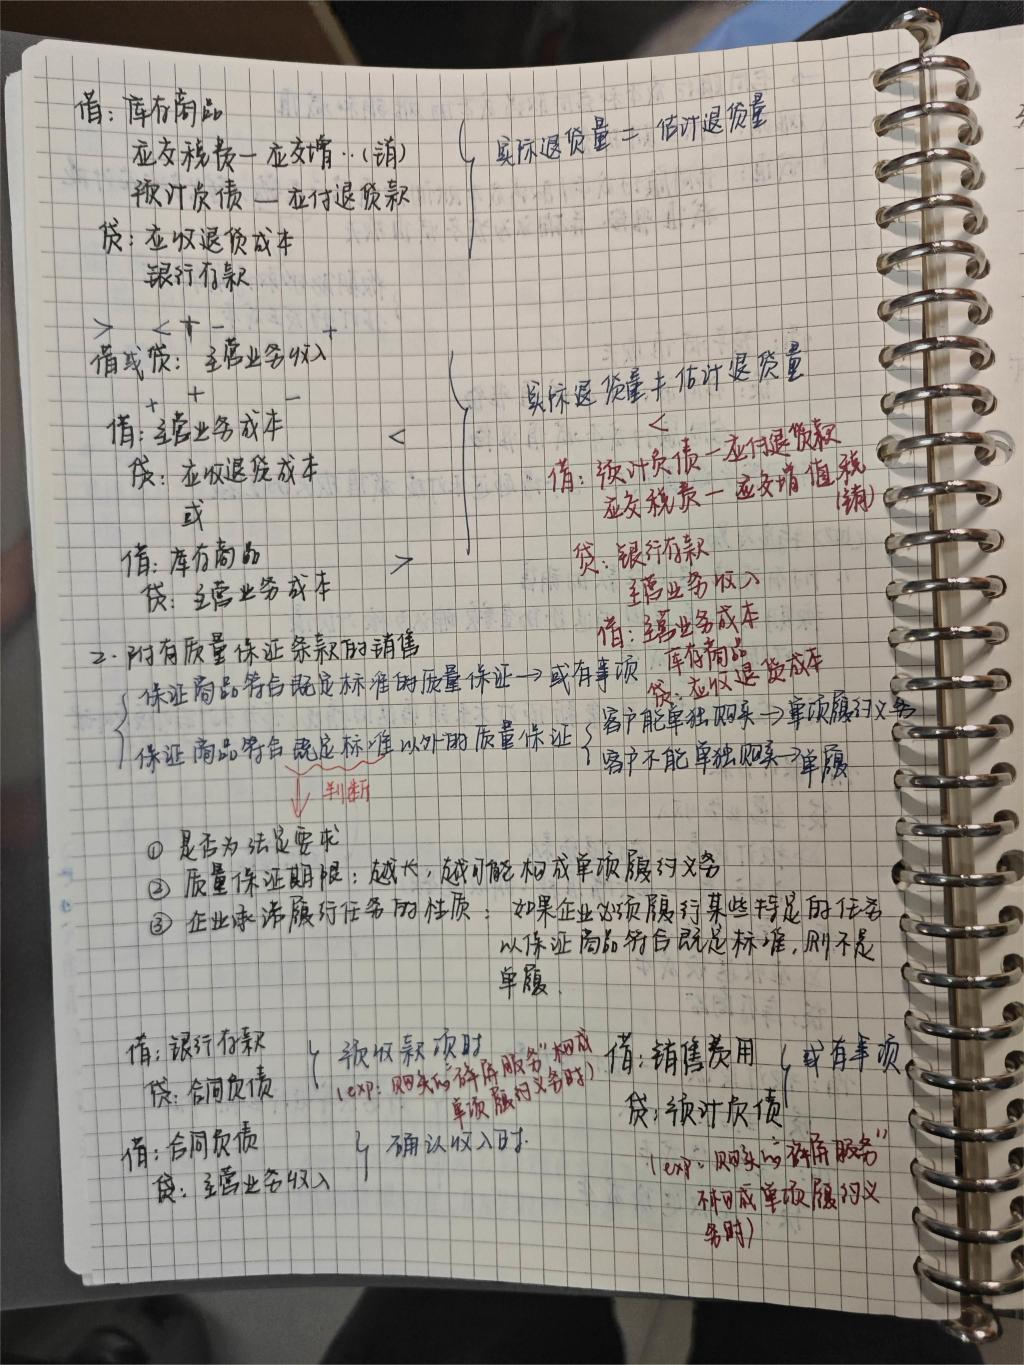 借：库存商品
应交税费一应交增··(销)
预计负债 — 应付退货款
贷：应收退货成本
银行存款
实际退货量 = 估计退货量
> < + − +
借或贷：主营业务收入
+ + −
借：主营业务成本 <
贷：应收退货成本
或
借：库存商品 >
贷：主营业务成本
实际退货量≠估计退货量
<
借：预计负债一应付退货款
应交税费一应交增值税
(销)
贷：银行存款
主营业务收入
借：主营业务成本
库存商品
贷：应收退货成本
2. 附有质量保证条款的销售
保证商品符合既定标准的质量保证→或有事项
保证商品符合既定标准以外的质量保证
客户能单独购买→单项履约义务
客户不能单独购买→单履
判断
① 是否为法定要求
② 质量保证期限：越长，越可能构成单项履约义务
③ 企业承诺履行任务的性质：如果企业必须履行某些特定的任务
以保证商品符合既定标准，则不是
单履.
借：银行存款
贷：合同负债
预收款项时
(exp：购买的“碎屏服务”构成
单项履约义务时)
借：合同负债
贷：主营业务收入
确认收入时.
借：销售费用
贷：预计负债
或有事项
(exp：购买的“碎屏服务”
不构成单项履约义
务时)